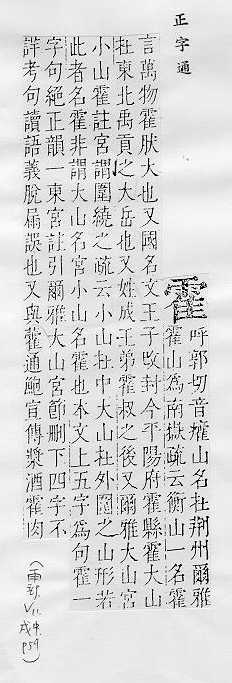 正字通
霍 呼郭切音癨山名在荆州爾雅
霍山為南嶽疏云衡山一名霍
言萬物霍肰大也又國名文王子攺封今平陽府霍縣霍大山
在東北禹貢之大岳也又姓成王弟霍叔之後又爾雅大山宮
小山霍註宮謂圍繞之疏云小山在中大山在外圍之山形若
此者名霍非謂大山名宮小山名霍也本文上五字為句霍一
字句絕正韻一東宮註引爾雅大山宮節刪下四字不
詳考句讀語義脫漏誤也又與藿通鮑宣傳漿酒霍肉
(雨部, V11, 戌中, P59)